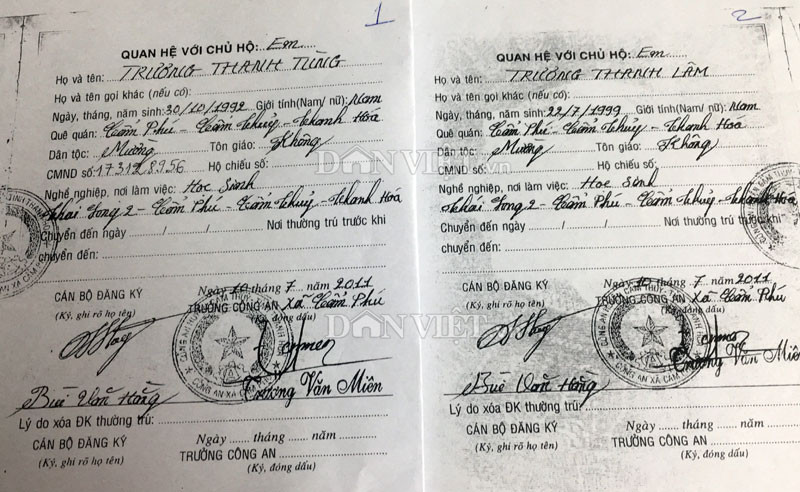 1
QUAN HỆ VỚI CHỦ HỘ: Em
Họ và tên: TRƯƠNG THANH TÙNG
Họ và tên gọi khác (nếu có):
Ngày, tháng, năm sinh: 30/10/1992 Giới tính(Nam/ nữ): Nam
Quê quán: Cẩm Phú - Cẩm Thủy - Thanh Hóa
Dân tộc: Mường Tôn giáo: Không
CMND số: 173128956 Hộ chiếu số:
Nghề nghiệp, nơi làm việc: Học Sinh
Thái Long 2 - Cẩm Phú - Cẩm Thủy - Thanh Hóa
Chuyển đến ngày / / Nơi thường trú trước khi
chuyển đến:
Ngày 10 tháng 7 năm 2011
CÁN BỘ ĐĂNG KÝ TRƯỞNG CÔNG AN Xã Cẩm Phú
(Ký, ghi rõ họ tên) (Ký, đóng dấu)
CÔNG AN XÃ CẨM
Bùi Văn Hằng Trương Văn Miên
Lý do xóa ĐK thường trú:
Ngày ...... tháng ...... năm ......
CÁN BỘ ĐĂNG KÝ TRƯỞNG CÔNG AN
(Ký, ghi rõ họ tên) (Ký, đóng dấu)
2
QUAN HỆ VỚI CHỦ HỘ: Em
Họ và tên: TRƯƠNG THANH LÂM
Họ và tên gọi khác (nếu có):
Ngày, tháng, năm sinh: 22/7/1999 Giới tính(Nam/ nữ): Nam
Quê quán: Cẩm Phú - Cẩm Thủy - Thanh Hóa
Dân tộc: Mường Tôn giáo: Không
CMND số: Hộ chiếu số:
Nghề nghiệp, nơi làm việc: Học Sinh
Thái Long 2 - Cẩm Phú - Cẩm Thủy - Thanh Hóa
Chuyển đến ngày / / Nơi thường trú trước khi
chuyển đến:
Ngày 10 tháng 7 năm 2011
CÁN BỘ ĐĂNG KÝ TRƯỞNG CÔNG AN Xã Cẩm Phú
(Ký, ghi rõ họ tên) (Ký, đóng dấu)
Bùi Văn Hằng Trương Văn Miên
Lý do xóa ĐK thường trú:
Ngày ...... tháng ...... năm ......
CÁN BỘ ĐĂNG KÝ TRƯỞNG CÔNG AN
(Ký, ghi rõ họ tên) (Ký, đóng dấu)
DANVIET.vn
DANVIET.vn